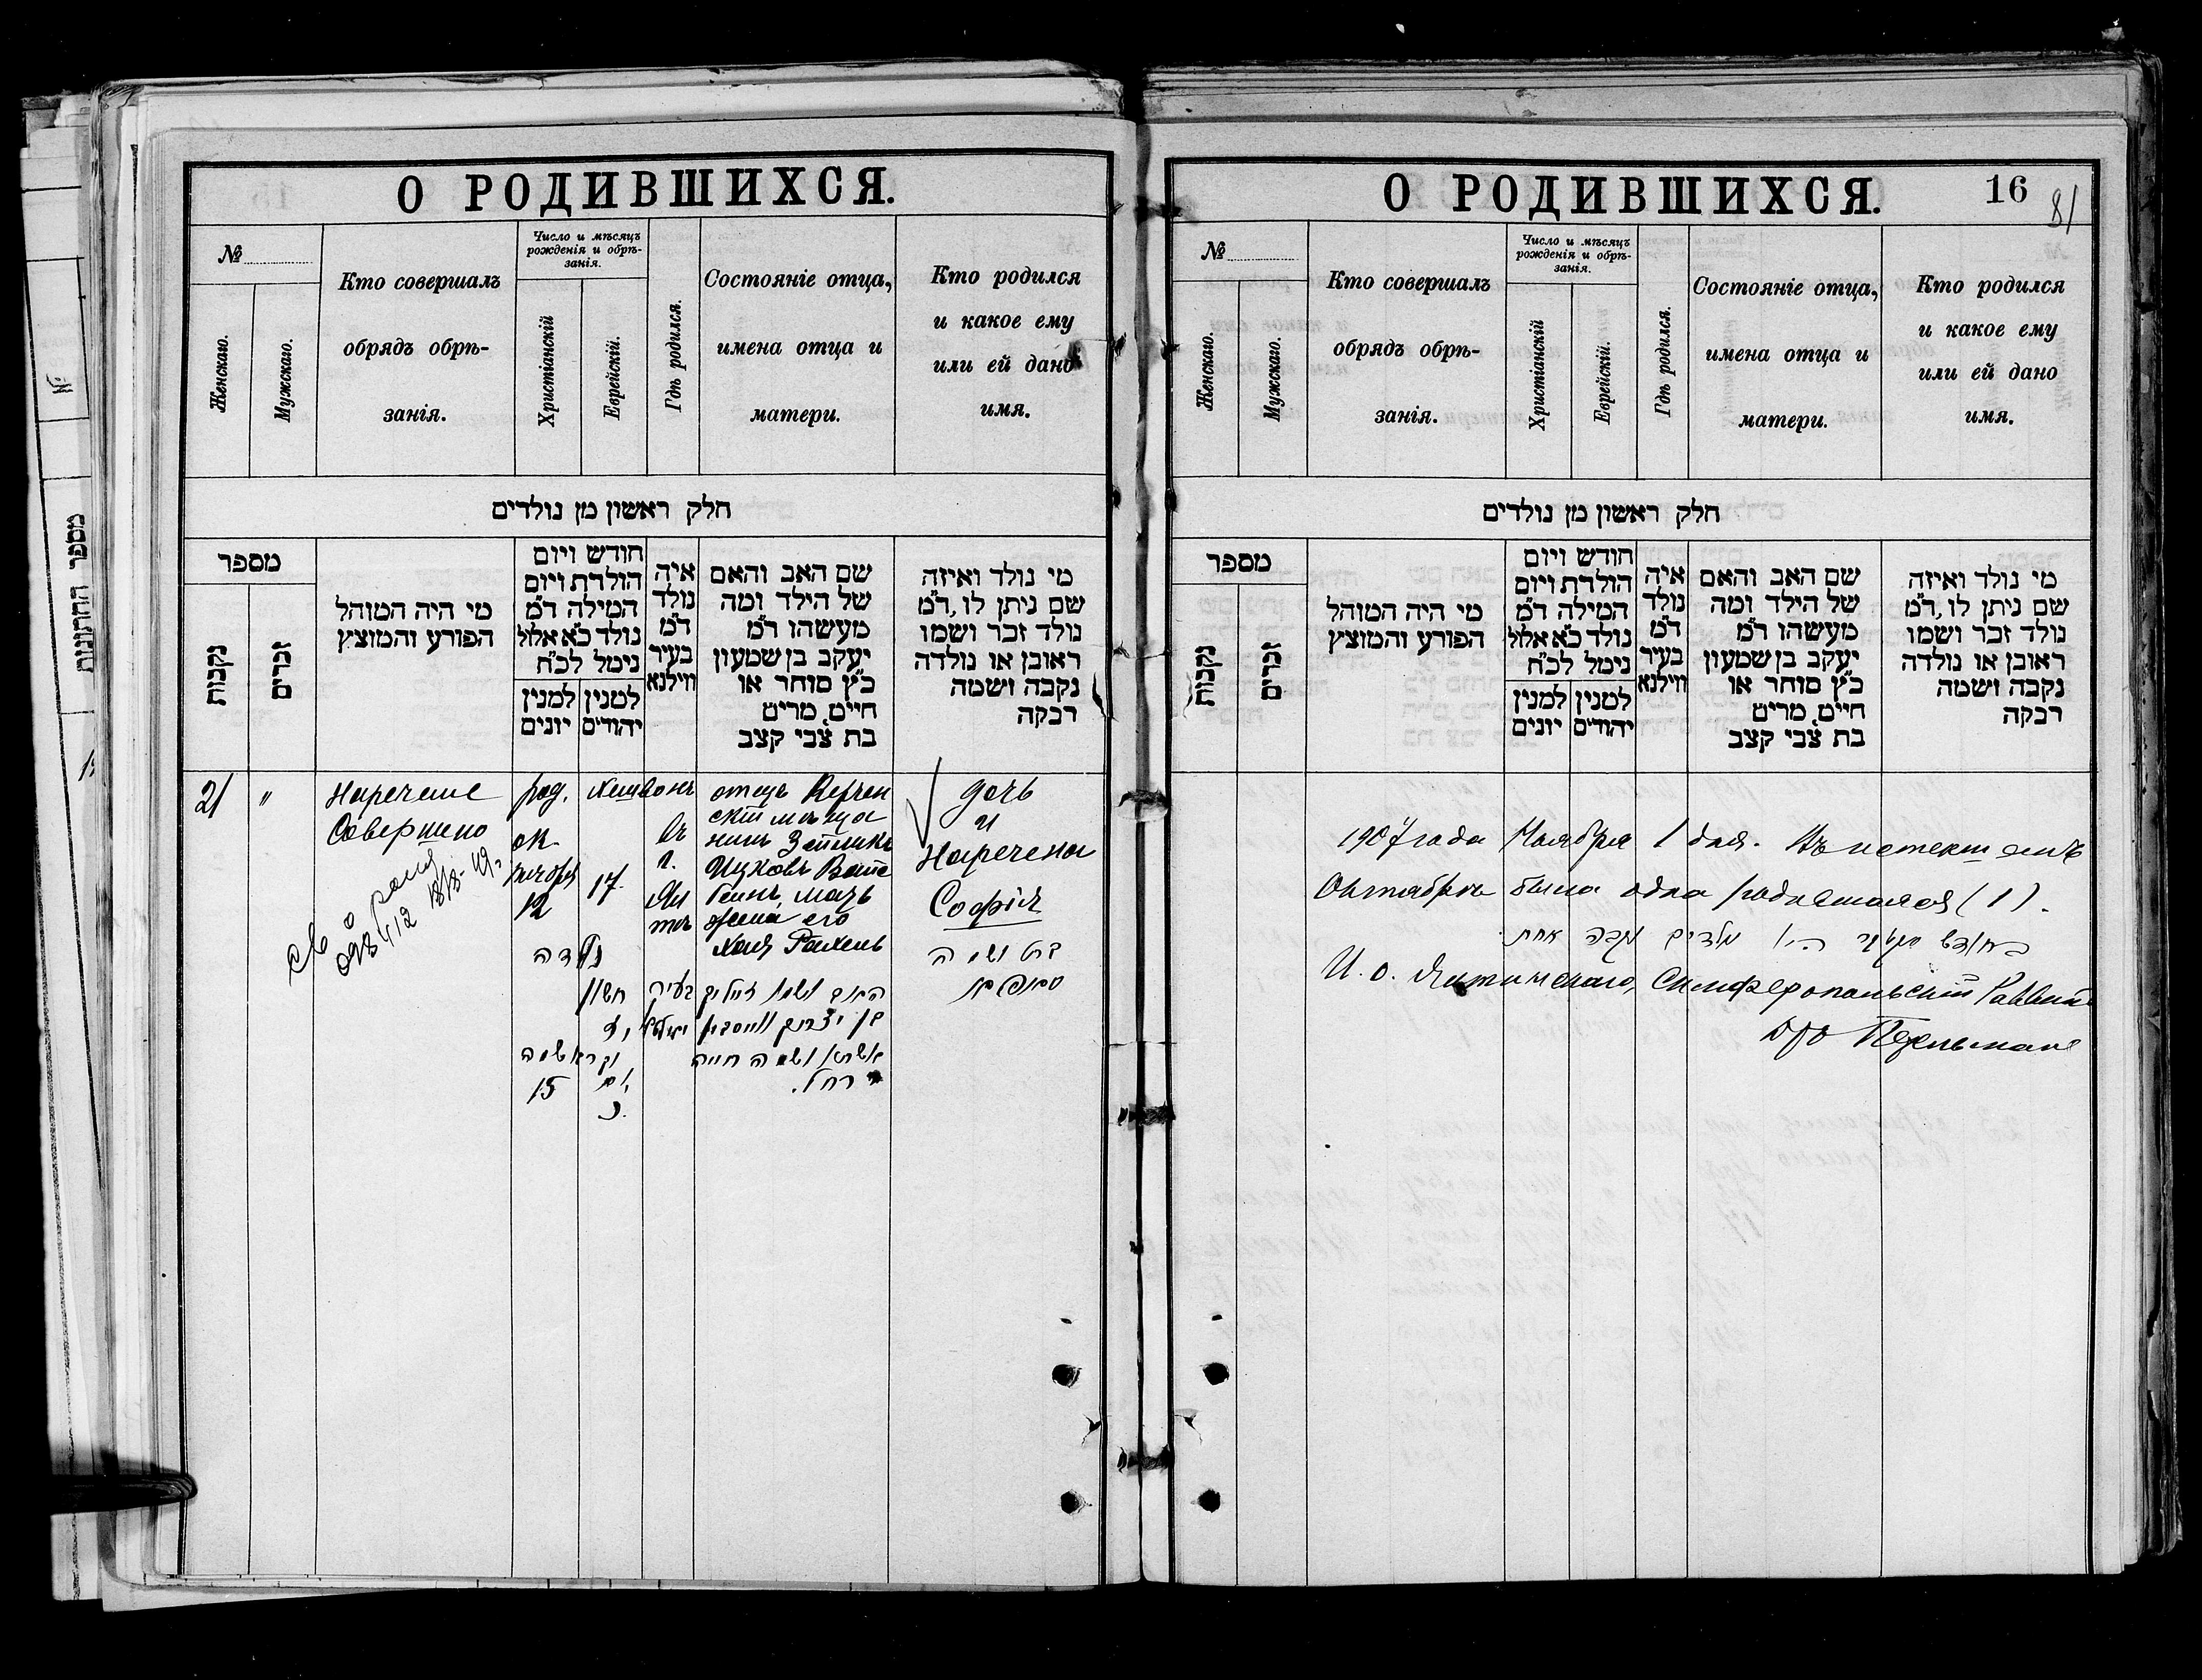 О РОДИВШИХСЯ.
№
Женскаго.
Мужскаго.
Кто совершалъ
обрядъ обрѣ-
занія.
Число и мѣсяцъ
рожденія и обрѣ-
занія.
Христіанскій
Еврейскій.
Гдѣ родился.
Состояніе отца,
имена отца и
матери.
Кто родился
и какое ему
или ей дано
имя.
חלק ראשון מן נולדים
מספר
נקבות
זכרים
מי היה המוהל
הפורע והמוצץ
חודש ויום
הולדת ויום
המילה ד״מ
נולד כ״א אלול
נימל לכ״ח
למנין יונים
למנין יהודים
איה
נולד
ד״מ
בעיר
ווילנא
שם האב והאם
של הילד ומה
מעשהו ד״מ
יעקב בן שמעון
כ״ץ סוחר או
חיים, מרים
בת צבי קצב
מי נולד ואיזה
שם ניתן לו, ד״מ
נולד זכר ושמו
ראובן או נולדה
נקבה ושמה
רבקה
21
"
Наречение
Совершено
род.
ок
тября
12
נולדה
וקרא שמה
15
Хешвонъ
17.
חשון
יז
יום
כ.
въ
г.
Ял
тѣ
בעיר
отецъ Керчен
скій мѣща
нинъ Зейликъ
Ицковъ Вайс
бейнъ, мать
жена его
Хая Рахель
האב ושמו זייליק
בן יצחק ווייסביין
האשה ושמה חייה
רחל.
дочь
и
Наречена
Софія
בת ושמה
מספר החתונות
О РОДИВШИХСЯ.
16
81
№
Женскаго.
Мужскаго.
Кто совершалъ
обрядъ обрѣ-
занія.
Число и мѣсяцъ
рожденія и обрѣ-
занія.
Христіанскій
Еврейскій.
Гдѣ родился.
Состояніе отца,
имена отца и
матери.
Кто родился
и какое ему
или ей дано
имя.
חלק ראשון מן נולדים
מספר
נקבות
זכרים
מי היה המוהל
הפורע והמוצץ
חודש ויום
הולדת ויום
המילה ד״מ
נולד כ״א אלול
נימל לכ״ח
למנין יונים
למנין יהודים
איה
נולד
ד״מ
בעיר
ווילנא
שם האב והאם
של הילד ומה
מעשהו ד״מ
יעקב בן שמעון
כ״ץ סוחר או
חיים, מרים
בת צבי קצב
מי נולד ואיזה
שם ניתן לו, ד״מ
נולד זכר ושמו
ראובן או נולדה
נקבה ושמה
רבקה
1907 года Ноября 1 дня. Въ истекшемъ
Октябрѣ была одна родившаяся (1).
נולדים נקבה אחת
И. о. Ялтинскаго, Симферопольскій Раввинъ